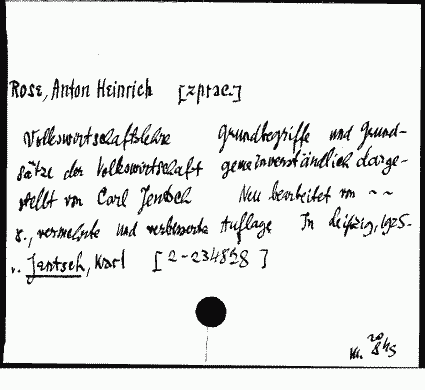 Rose, Anton Heinrich [zprac.]
Volkswirtschaftslehre Grundbegriffe und Grund-
sätze der Volkswirtschaft gemeinverständlich darge-
stellt von Carl Jentsch Neu bearbeitet von ~ ~
8., vermehrte und verbesserte Auflage In Leipzig, 1925.
v. Jentsch, Karl [2-234898]